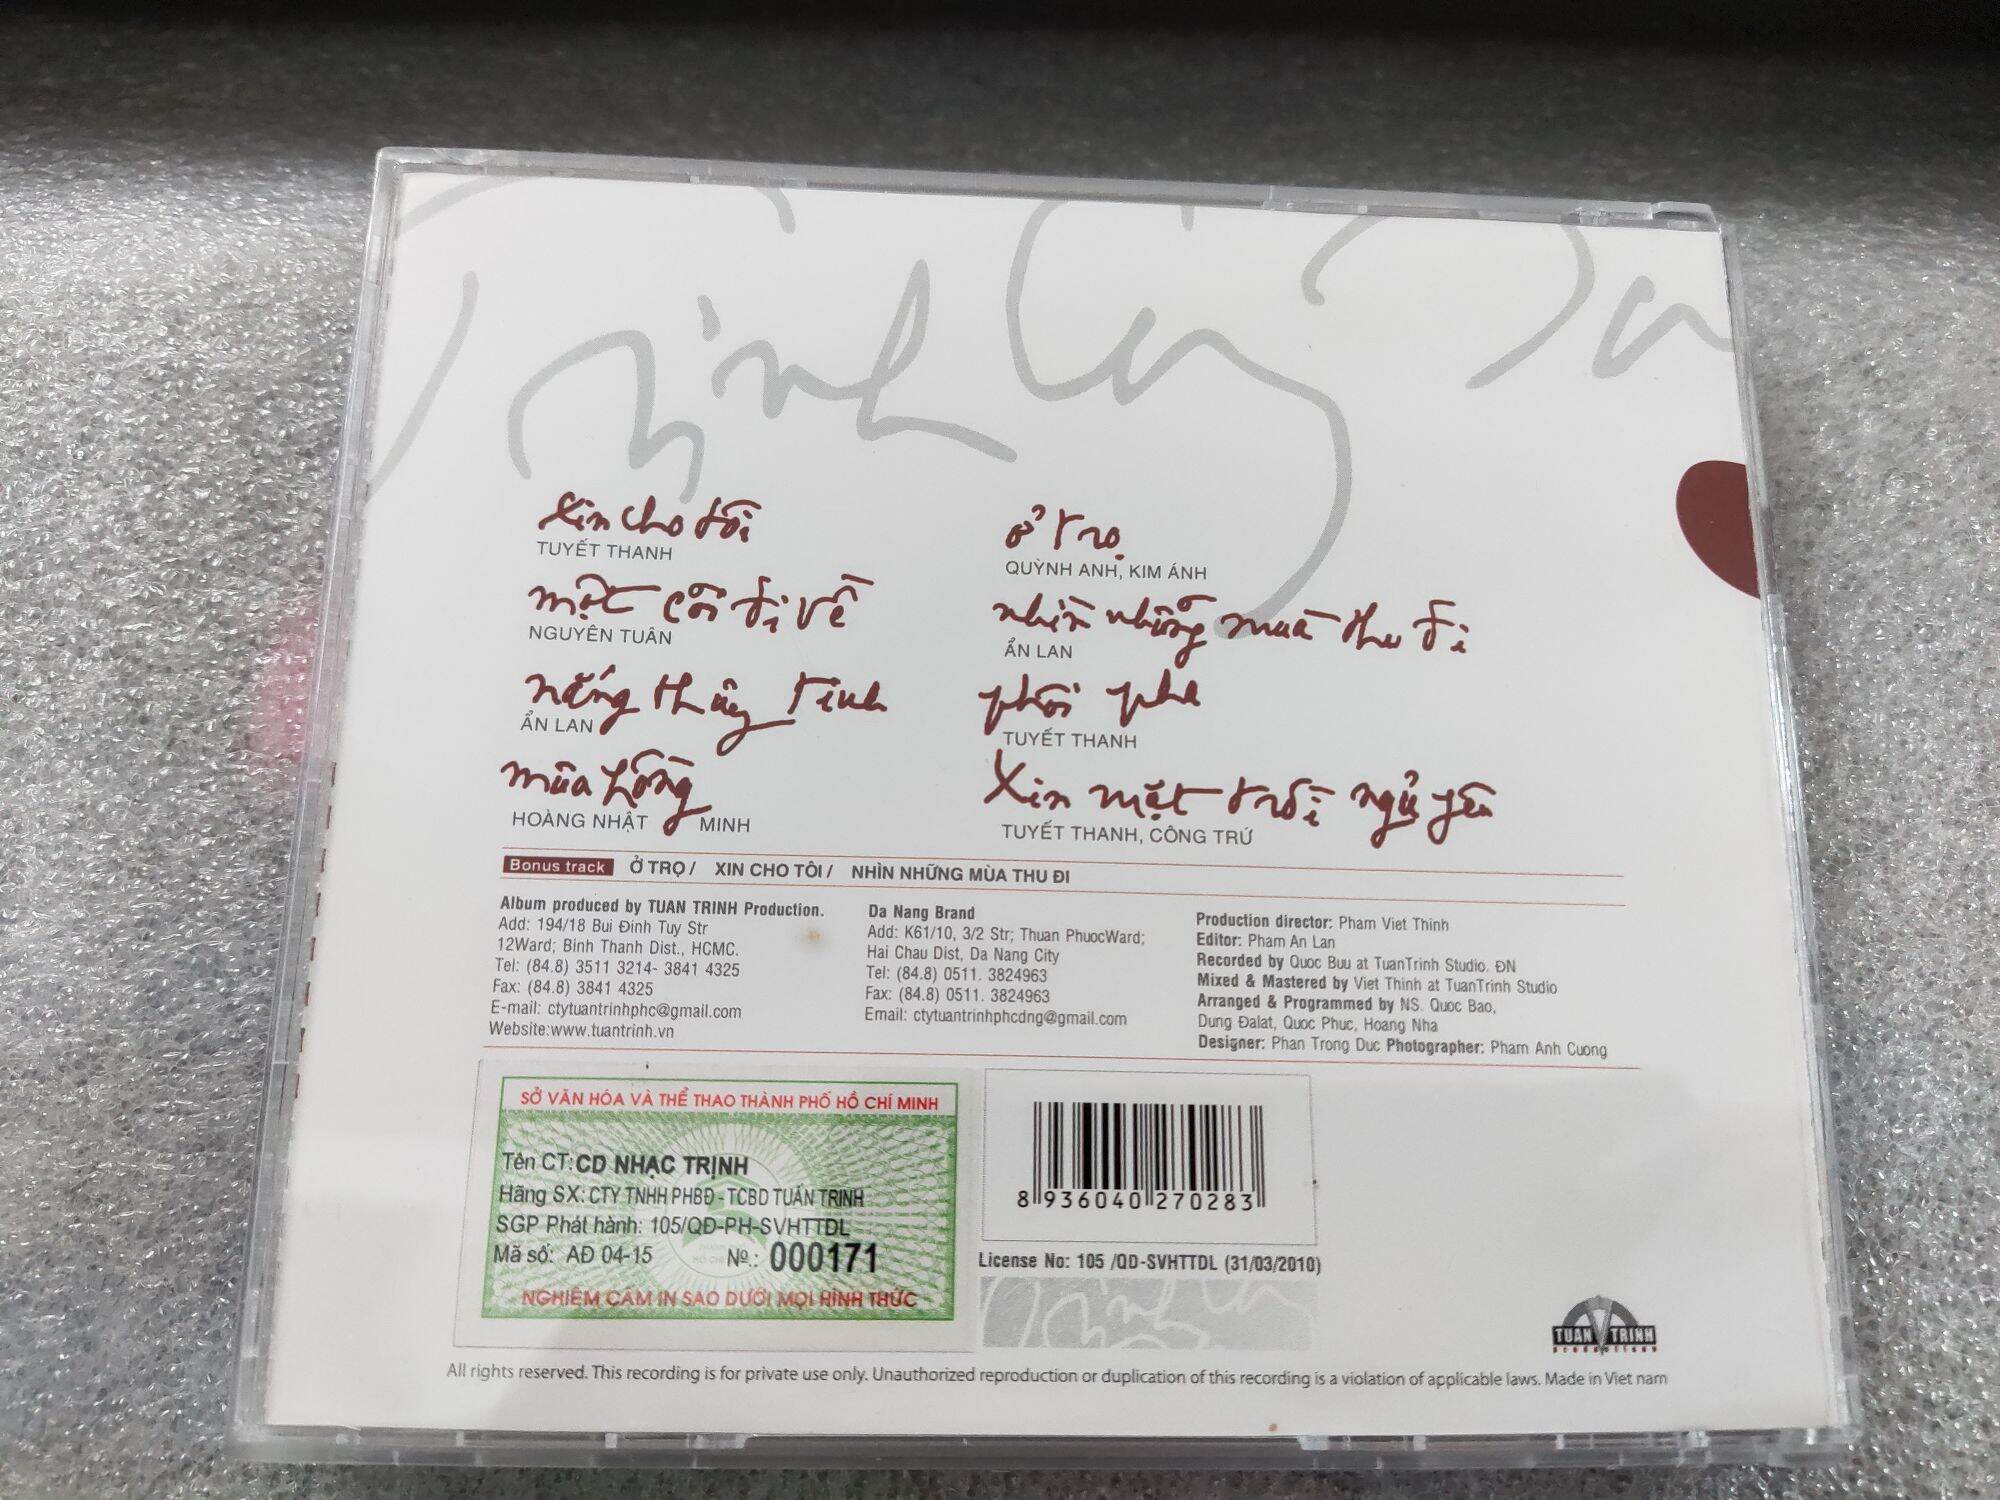 Trịnh Công Sơn
Xin cho tôi
TUYẾT THANH
một cõi đi về
NGUYÊN TUÂN
nắng thủy tinh
ẨN LAN
mưa hồng
HOÀNG NHẬT MINH
ở trọ
QUỲNH ANH, KIM ÁNH
nhìn những mùa thu đi
ẨN LAN
phôi pha
TUYẾT THANH
Xin mặt trời ngủ yên
TUYẾT THANH, CÔNG TRỨ
Bonus track Ở TRỌ / XIN CHO TÔI / NHÌN NHỮNG MÙA THU ĐI
Album produced by TUAN TRINH Production.
Add: 194/18 Bui Đinh Tuy Str
12Ward; Binh Thanh Dist., HCMC.
Tel: (84.8) 3511 3214- 3841 4325
Fax: (84.8) 3841 4325
E-mail: ctytuantrinhphc@gmail.com
Website:www.tuantrinh.vn
Da Nang Brand
Add: K61/10, 3/2 Str; Thuan PhuocWard;
Hai Chau Dist, Da Nang City
Tel: (84.8) 0511. 3824963
Fax: (84.8) 0511. 3824963
Email: ctytuantrinhphcdng@gmail.com
Production director: Pham Viet Thinh
Editor: Pham An Lan
Recorded by Quoc Buu at TuanTrinh Studio. ĐN
Mixed & Mastered by Viet Thinh at TuanTrinh Studio
Arranged & Programmed by NS. Quoc Bao,
Dung Đalat, Quoc Phuc, Hoang Nha
Designer: Phan Trong Duc Photographer: Pham Anh Cuong
SỞ VĂN HÓA VÀ THỂ THAO THÀNH PHỐ HỒ CHÍ MINH
Tên CT: CD NHẠC TRỊNH
Hãng SX: CTY TNHH PHBĐ - TCBD TUẤN TRINH
SGP Phát hành: 105/QĐ-PH-SVHTTDL
Mã số: AĐ 04-15 №.: 000171
NGHIÊM CẤM IN SAO DƯỚI MỌI HÌNH THỨC
8 936040 270283
License No: 105 /QD-SVHTTDL (31/03/2010)
TUAN TRINH
productions
All rights reserved. This recording is for private use only. Unauthorized reproduction or duplication of this recording is a violation of applicable laws. Made in Viet nam